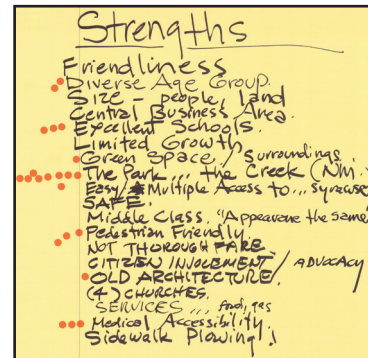 Strengths
Friendliness
Diverse Age Group.
Size - people, land
Central Business Area.
Excellent Schools.
Limited Growth
Green Space / Surroundings
The Park... the Creek (Nm.
Easy / Multiple Access to... Syracuse
SAFE.
Middle Class. "Appearance the same
Pedestrian Friendly.
NOT THOROUGHFARE.
CITIZEN INVOLEMENT / ADVOCACY
OLD ARCHITECTURE
(4) CHURCHES.
SERVICES... food, gas
Medical Accessibility.
Sidewalk Plowing!